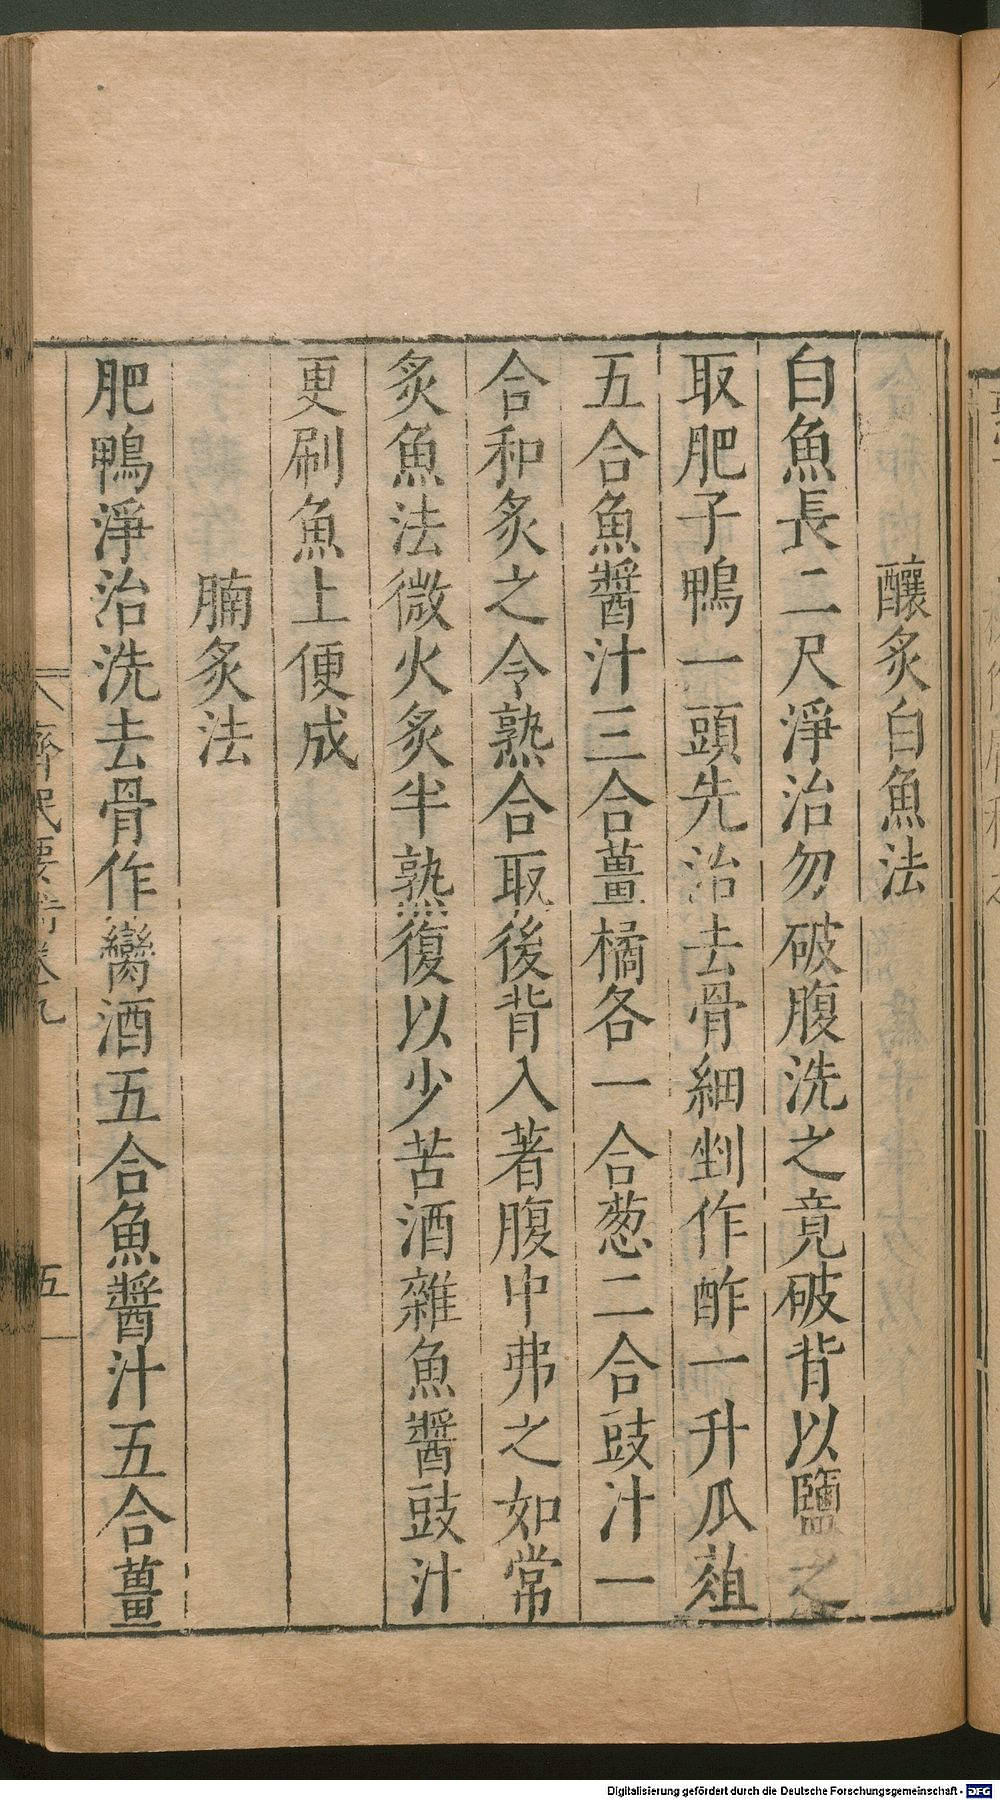 釀炙白魚法
白魚長二尺淨治勿破腹洗之竟破背以鹽之
取肥子鴨一頭先治去骨細剉作酢一升瓜菹
五合魚醬汁三合薑橘各一合葱二合豉汁一
合和炙之令熟合取後背入著腹中弗之如常
炙魚法微火炙半熟復以少苦酒雜魚醬豉汁
更刷魚上便成
腩炙法
肥鴨淨治洗去骨作臠酒五合魚醬汁五合薑
齊民要術卷九
五
Digitalisierung gefördert durch die Deutsche Forschungsgemeinschaft - DFG